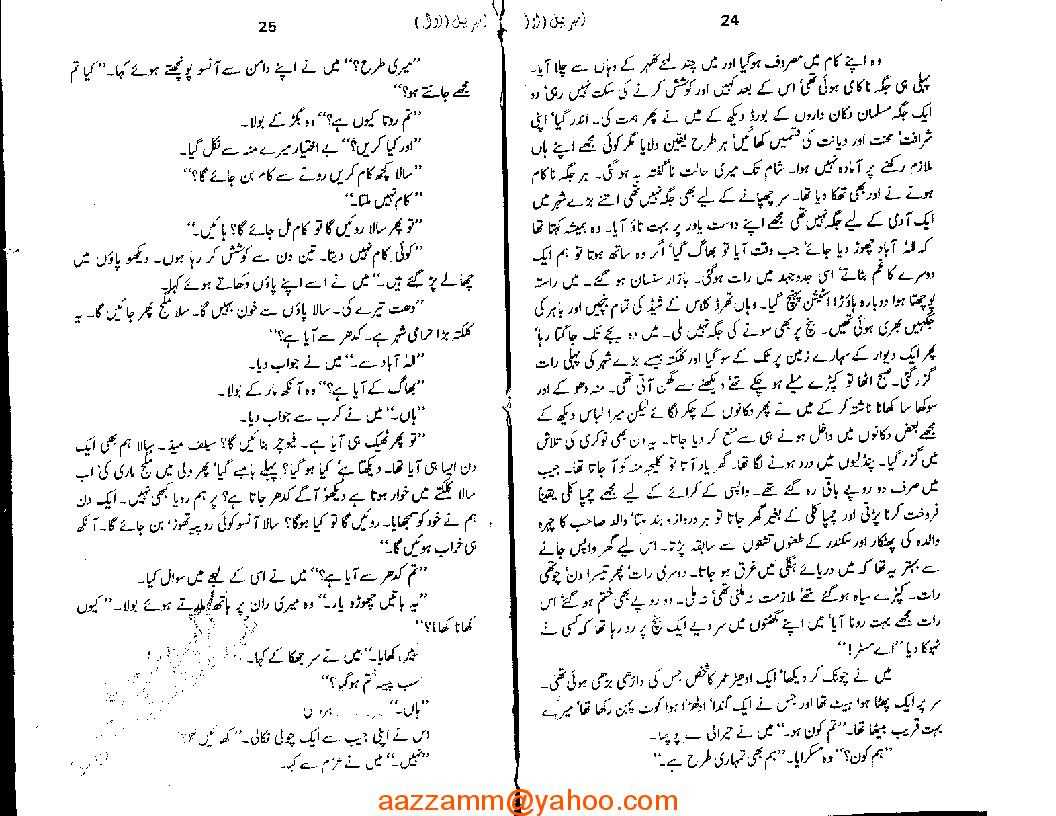 24
وہ اپنے کام میں مصروف ہوگیا اور میں چند لمحے ٹھہر کے وہاں سے چلا آیا۔
پہلی ہی جگہ ناکامی ہوئی تھی' اس کے بعد کہیں اور کوشش کرنے کی سکت نہیں رہی' دو
ایک جگہ مسلمان دکان داروں کے بورڈ دیکھ کے میں نے پھر ہمت کی۔ اندر گیا' اپنی
شرافت' محنت اور دیانت کی قسمیں کھائیں' ہر طرح یقین دلایا مگر کوئی مجھے اپنے ہاں
ملازم رکھنے پر آمادہ نہیں ہوا۔ شام تک میری حالت ناگفتہ بہ ہوگئی۔ ہر جگہ ناکام
ہونے نے اور بھی تھکا دیا تھا۔ سر چھپانے کے لیے بھی جگہ نہیں تھی' اتنے بڑے شہر میں
ایک آدمی کے لیے جگہ نہیں تھی' مجھے اپنے دوست یاور پر بہت تاؤ آیا۔ وہ ہمیشہ کہتا تھا
کہ الہٰ آباد چھوڑ دیا جائے' جب وقت آیا تو بھاگ گیا' اگر وہ ساتھ ہوتا تو ہم ایک
دوسرے کا غم بٹاتے' اسی جدوجہد میں رات ہوگئی۔ بازار سنسان ہو گئے۔ میں راستہ
پوچھتا ہوا دوبارہ ہاؤڑا اسٹیشن پہنچ گیا۔ وہاں تھرڈ کلاس کے شیڈ کی تمام بنچیں اور باہر کی
جگہیں بھری ہوئی تھیں۔ بنچ پر بھی سونے کی جگہ نہیں ملی۔ میں دو بجے تک جاگتا رہا'
پھر ایک دیوار کے سہارے زمین پر ٹک کے سو گیا اور کلکتہ جیسے بڑے شہر کی پہلی رات
گزر گئی۔ صبح اٹھا تو کپڑے میلے ہو چکے تھے' دیکھنے سے گھن آتی تھی۔ منہ دھو کے اور
سوکھا سا کھانا ناشتہ کر کے میں نے پھر دکانوں کے چکر لگائے لیکن میرا لباس دیکھ کے
مجھے بعض دکانوں میں داخل ہونے ہی سے منع کر دیا جاتا۔ یہ دن بھی نوکری کی تلاش
میں گزر گیا۔ پنڈلیوں میں درد ہونے لگا تھا۔ گھر یاد آتا تو کلیجہ منہ کو آ جاتا تھا۔ جیب
میں صرف دو روپے باقی رہ گئے تھے۔ واپسی کے کرائے کے لیے مجھے چمپا کلی یقیناً
فروخت کرنا پڑتی اور چمپا کلی کے بغیر گھر جاتا تو ہر دروازہ بند ملتا' والد صاحب کا چہرہ
والدہ کی پھٹکار اور سکندر کے طعنوں تشنوں سے سابقہ پڑتا۔ اس لیے گھر واپس جانے
سے بہتر یہ تھا کہ میں دریائے ہگلی میں غرق ہو جاتا۔ دوسری رات' پھر تیسرا دن' چوتھی
رات۔ کپڑے سیاہ ہوگئے تھے' ملازمت نہ ملنی تھی' نہ ملی۔ دو روپے بھی ختم ہو گئے اس
رات مجھے بہت رونا آیا' میں اپنے گھٹنوں میں سر دیے ایک بنچ پر رو رہا تھا کہ کسی نے
ٹہوکا دیا "اے مسٹر!"
میں نے چونک کر دیکھا' ایک ادھیڑ عمر کا شخص جس کی داڑھی بڑھی ہوئی تھی۔
سر پر ایک پھٹا ہوا ہیٹ تھا اور جس نے ایک گندا' ادھڑا ہوا کوٹ پہن رکھا تھا' میرے
بہت قریب بیٹھا تھا۔ "تم کون ہو۔" میں نے حیرانی سے پوچھا۔
"ہم کون؟" وہ مسکرایا۔ "ہم بھی تمہاری طرح ہے۔"
25
(اول)
"میری طرح؟" میں نے اپنے دامن سے آنسو پونچھتے ہوئے کہا۔ "کیا تم
مجھے جانتے ہو؟"
"تم روتا کیوں ہے؟" وہ بگڑ کے بولا۔
"اور کیا کریں؟" بے اختیار میرے منہ سے نکل گیا۔
"سالا کچھ کام کریں' رونے سے کام بن جائے گا؟"
"کام نہیں ملتا۔"
"تو پھر سالا روئیں گا تو کام مل جائے گا؟ ہائیں۔"
"کوئی کام نہیں دیتا۔ تین دن سے کوشش کر رہا ہوں۔ دیکھو پاؤں میں
چھالے پڑ گئے ہیں۔" میں نے اسے اپنے پاؤں دکھاتے ہوئے کہا۔
"دھت تیرے کی۔ سالا پاؤں سے خون بہیں گا۔ سالا مگج پھر جائیں گا۔ یہ
کلکتہ بڑا حرامی شہر ہے۔ کدھر سے آیا ہے؟"
"الہٰ آباد سے۔" میں نے جواب دیا۔
"بھاگ کے آیا ہے؟" وہ آنکھ مار کے بولا۔
"ہاں۔" میں نے کرب سے جواب دیا۔
"تو پھر ٹھیک ہی آیا ہے۔ فیوچر بنائیں گا؟ سیلف میڈ۔ سالا ہم بھی ایک
دن ایسا ہی آیا تھا۔ دیکھتا ہے' کیا ہوگیا؟ پہلے بامبے گیا' پھر دلی میں مگج ماری کی اب
سالا کلکتے میں خوار ہوتا ہے دیکھو' آگے کدھر جاتا ہے؟ پر ہم رویا کبھی نہیں۔ ایک دن
ہم نے خود کو سمجھایا۔ روئیں گا تو کیا ہوگا؟ سالا آنسو کوئی روپیہ تھوڑا بن جائے گا۔ آنکھ
ہی خراب ہوئیں گا۔"
"تم کدھر سے آیا ہے؟" میں نے اسی کے لہجے میں سوال کیا۔
"یہ باتیں چھوڑو یار۔" وہ میری ران پر ہاتھ مارتے ہوئے بولا۔ "کیوں
کھانا کھانا؟"
کھایا۔" میں نے سر جھکا کے کہا۔
سب پیسہ ختم ہوگیا؟"
"ہاں۔"
اس نے اپنی جیب سے ایک چونی نکالی۔ "کھائیں
"نہیں۔" میں نے عزم سے کہا۔
aazzamm@yahoo.com